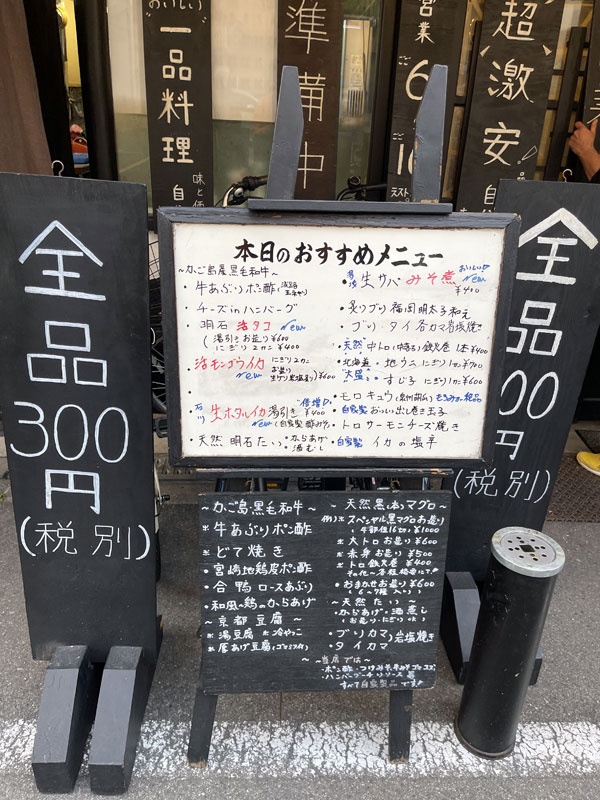 おいしい
一品料理
準備中
営業
6
超激安
味と
全品
300
円
(税別)
全品
00
円
(税別)
本日のおすすめメニュー
～かご島産黒毛和牛～
・牛あぶりポン酢
チーズinハンバーグ
・明石 活タコ New
(湯引き お造り ¥600
にぎり2カン ¥400
・活モンゴウイカ にぎり2カン
お造り
New
¥600
・生ホタルイカ 湯引き ¥400
New (自家製 酢みそ)
・天然 明石たい ・からあげ
・酒むし
生サバ みそ煮 おいしい New
¥400
・炙りブリ 福岡明太子和え
・ブリ・タイ各カマ岩塩焼き
・天然 中トロ(中落ち)鉄火巻 1本¥400
・北海道・地ウニにぎり1カン¥700
"大盛" ・すじ子 にぎり1カン¥600
・モロキュウ
・自家製 おいしい出し巻き玉子
・トロサーモンチーズ焼き
・自家製 イカの塩辛
～かご島黒毛和牛～
・牛あぶりポン酢
・どて焼き
・宮崎地鶏皮ポン酢
・合鴨ロースあぶり
・和風鶏のからあげ
～京都豆腐～
湯豆腐 冷やっこ
厚あげ豆腐
～天然黒(本)マグロ～
スペシャル黒マグロお造り
¥1000
大トロお造り ¥600
赤身お造り ¥500
トロ鉄火巻 ¥400
おまかせお造り ¥600
(6～7種入り)
～天然たい～
・からあげ・酒蒸し
(お造り・にぎりOK)
・ブリカマ 岩塩焼き
・タイカマ
～当店では～
すべて自家製品です!!